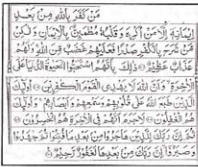 مَن كَفَرَ بِاللَّهِ مِن بَعْدِ
إِيمَانِهِ إِلَّا مَنْ أُكْرِهَ وَقَلْبُهُ مُطْمَئِنٌّ بِالْإِيمَانِ وَلَٰكِن
مَّن شَرَحَ بِالْكُفْرِ صَدْرًا فَعَلَيْهِمْ غَضَبٌ مِّنَ اللَّهِ وَلَهُمْ
عَذَابٌ عَظِيمٌ ذَٰلِكَ بِأَنَّهُمُ اسْتَحَبُّوا الْحَيَاةَ الدُّنْيَا عَلَى
الْآخِرَةِ وَأَنَّ اللَّهَ لَا يَهْدِي الْقَوْمَ الْكَافِرِينَ أُولَٰئِكَ
الَّذِينَ طَبَعَ اللَّهُ عَلَىٰ قُلُوبِهِمْ وَسَمْعِهِمْ وَأَبْصَارِهِمْ وَأُولَٰئِكَ
هُمُ الْغَافِلُونَ لَا جَرَمَ أَنَّهُمْ فِي الْآخِرَةِ هُمُ الْخَاسِرُونَ
ثُمَّ إِنَّ رَبَّكَ لِلَّذِينَ هَاجَرُوا مِن بَعْدِ مَا فُتِنُوا ثُمَّ جَاهَدُوا
وَصَبَرُوا إِنَّ رَبَّكَ مِن بَعْدِهَا لَغَفُورٌ رَّحِيمٌ